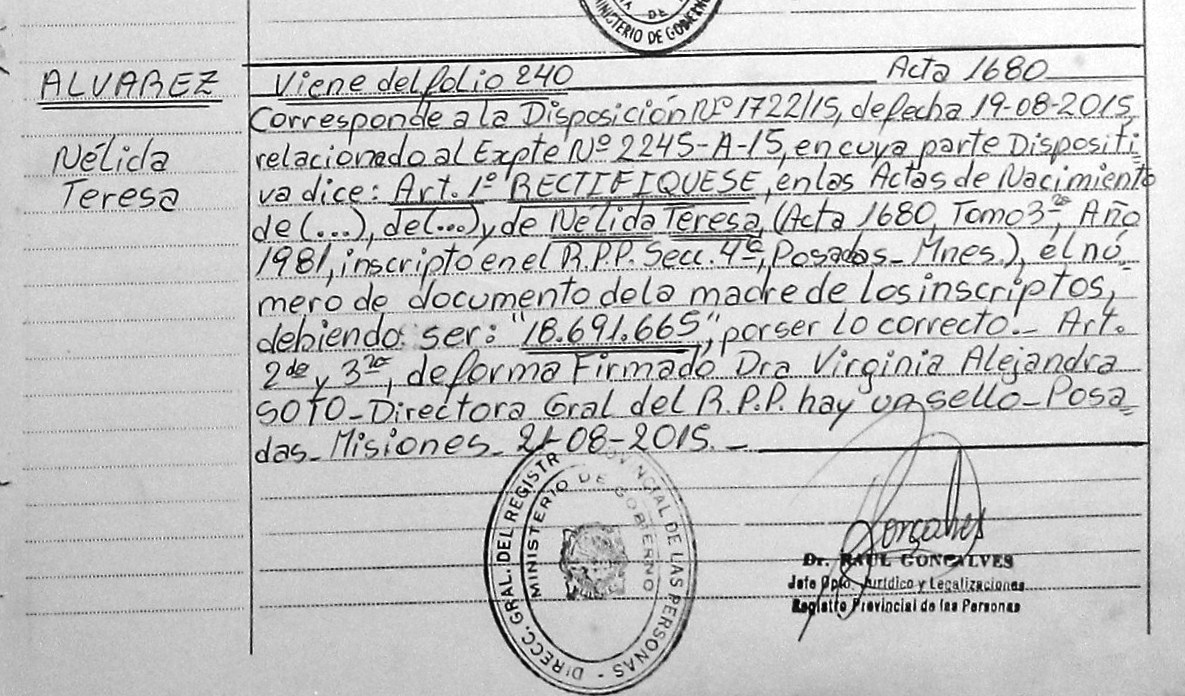 MINISTERIO DE GOBIERNO
ALVAREZ
Nélida
Teresa
Viene del folio 240 Acta 1680
Corresponde a la Disposición Nº 1722/15, de fecha 19-08-2015,
relacionado al Expte Nº 2245-A-15, en cuya parte Dispositi
va dice: Art. 1º RECTIFIQUESE, en las Actas de Nacimiento
de (...), de (...) y de Nélida Teresa, (Acta 1680, Tomo 3ro, Año
1981, inscripto en el R.P.P. Secc. 4º, Posadas_ Mnes.), el nú_
mero de documento de la madre de los inscriptos,
debiendo ser: "18.691.665", por ser lo correcto._ Art.
2do y 3ro, de forma Firmado Dra Virginia Alejandra
SOTO_Directora Gral del R.P.P. hay un sello_Posa_
das_Misiones_21-08-2015._
DIRECC. GRAL. DEL REGISTRO PROVINCIAL DE LAS PERSONAS -
MINISTERIO DE GOBIERNO
Dr. RAUL GONCALVES
Jefe Dpto. Jurídico y Legalizaciones
Registro Provincial de las Personas